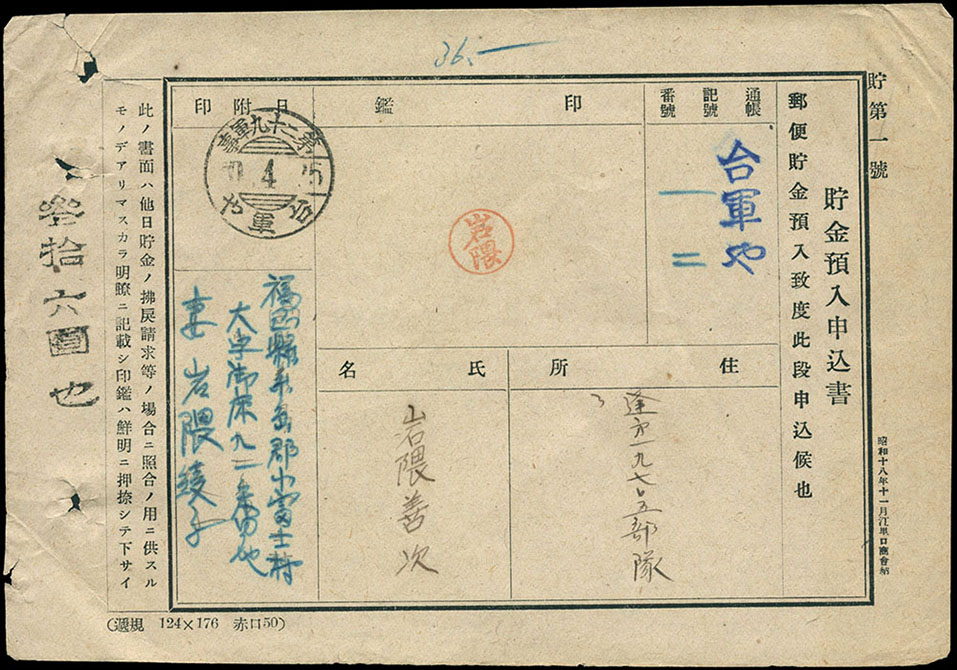 36.—
貯第一號
貯金預入申込書
郵便貯金預入致度此段申込候也
昭和十八年十一月江里口商會納
通帳
記號
番號
台軍や
一二
印鑑
岩隈
日附印
第二十九軍事
4
台軍や
住所
蓬第一九七〇五部隊
氏名
岩隈善次
福岡縣糸島郡小富士村
大字御床九二
妻 岩隈綾子
此ノ書面ハ他日貯金ノ拂戾請求等ノ場合ニ照合ノ用ニ供スル
モノデアリマスカラ明瞭ニ記載シ印鑑ハ鮮明ニ押捺シテ下サイ
參拾六圓也
(遞規 124×176 赤口50)